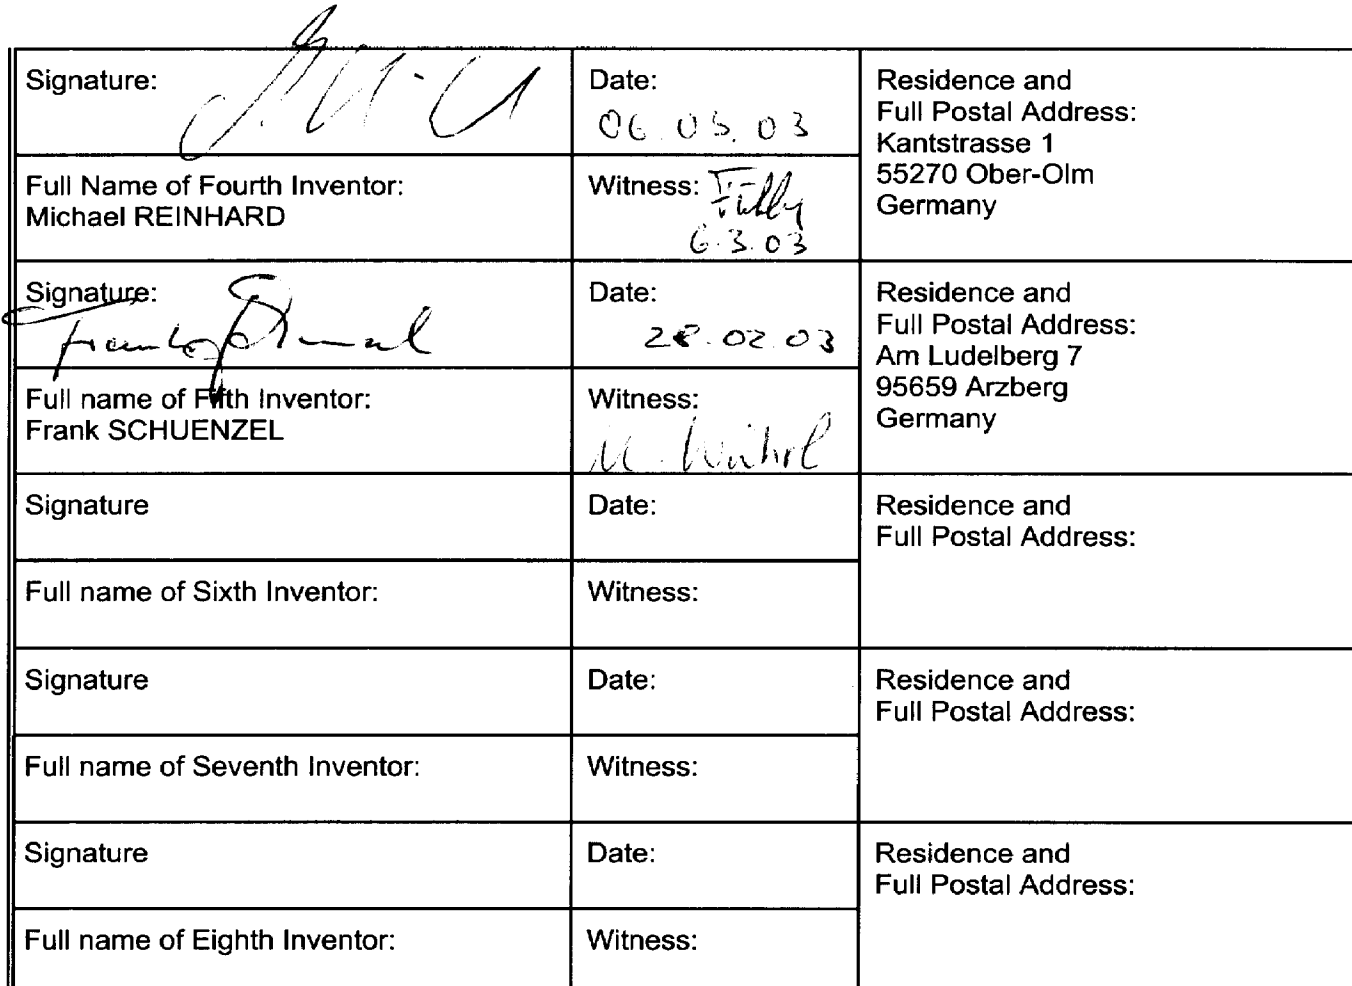 Signature:
Date:
06.03.03
Residence and
Full Postal Address:
Kantstrasse 1
55270 Ober-Olm
Germany
Full Name of Fourth Inventor:
Michael REINHARD
Witness:
6.3.03
Signature:
Date:
28.02.03
Residence and
Full Postal Address:
Am Ludelberg 7
95659 Arzberg
Germany
Full name of Fifth Inventor:
Frank SCHUENZEL
Witness:
Signature
Date:
Residence and
Full Postal Address:
Full name of Sixth Inventor:
Witness:
Signature
Date:
Residence and
Full Postal Address:
Full name of Seventh Inventor:
Witness:
Signature
Date:
Residence and
Full Postal Address:
Full name of Eighth Inventor:
Witness: